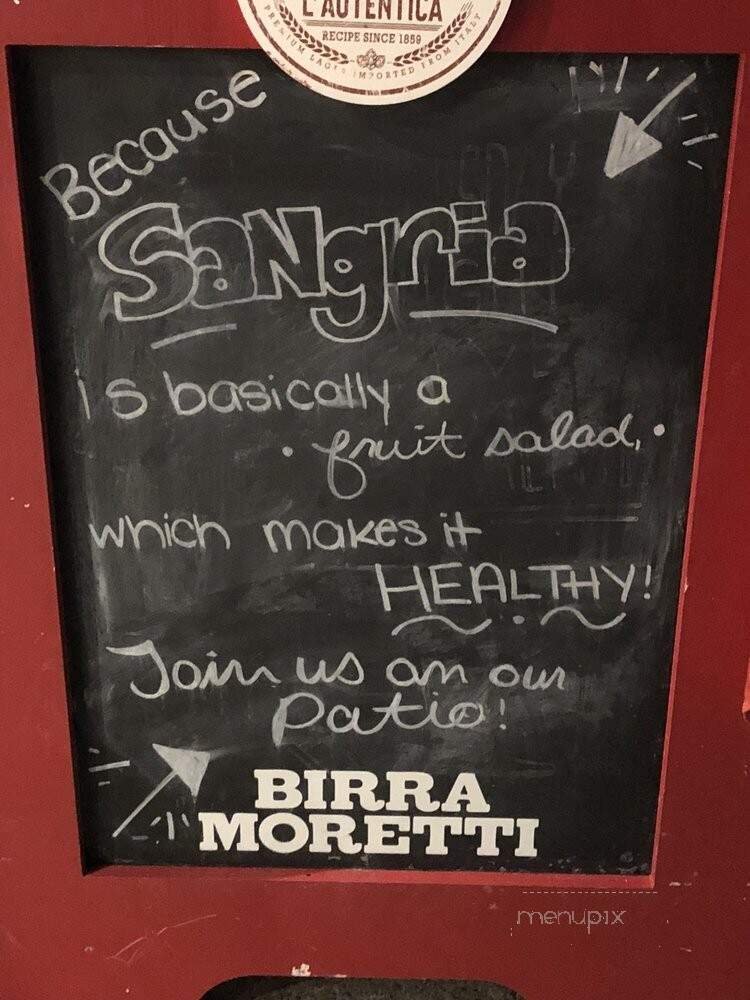 L'AUTENTICA
RECIPE SINCE 1859
PREMIUM LAGER IMPORTED FROM ITALY
Because
SaNgria
is basically a
• fruit salad, •
which makes it
HEALTHY!
Join us on our
Patio!
BIRRA
MORETTI
menupix